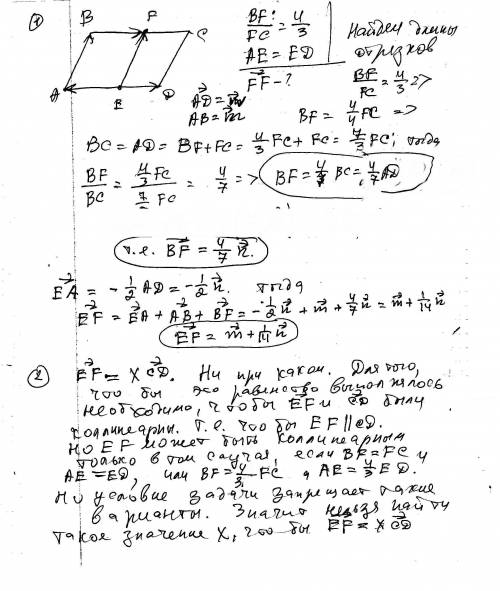 1
B F C
A E D
BF : FC = 4/3
AE = ED
EF - ?
Найдем длины отрезков
BF/FC = 4/3 =>
AD = n
AB = m
BF = 4/4 FC =>
BC = AD = BF + FC = 4/3 FC + FC = 7/3 FC; тогда
BF/BC = 4/3 FC / 7/3 FC = 4/7 => BF = 4/7 BC = 4/7 AD
т.е. BF = 4/7 n.
EA = -1/2 AD = -1/2 n. тогда
EF = EA + AB + BF = -1/2 n + m + 4/7 n = m + 1/14 n
EF = m + 1/14 n
2 EF = x CD. Ни при каком. Для того,
что бы это равенство выполнялось
необходимо, чтобы EF и CD были
коллинеарны. Т.е. что бы EF || CD.
Но EF может быть коллинеарным
только в том случае, если BF = FC и
AE = ED, или BF = 4/3 FC, а AE = 4/3 ED.
Но условие задачи запрещает такие
варианты. Значит нельзя найти
такое значение x, что бы EF = x CD